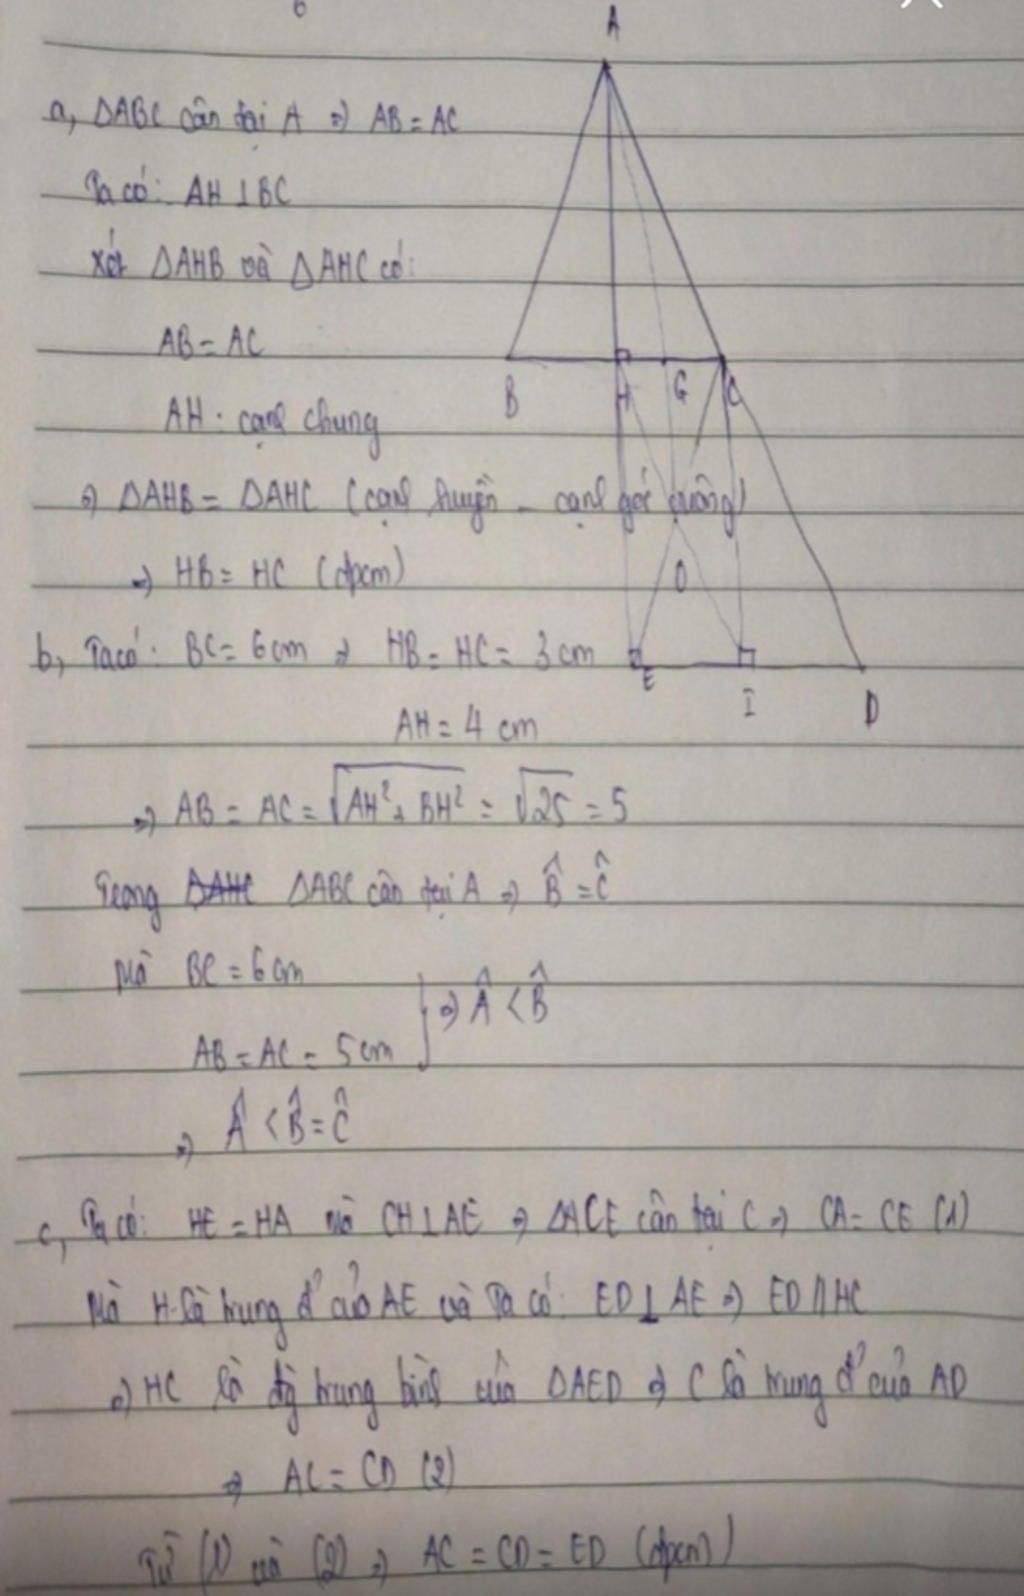 A
a, ΔABC cân tại A => AB = AC
Ta có: AH ⊥ BC
Xét ΔAHB và ΔAHC có:
AB = AC
B H G C
AH: cạnh chung
=> ΔAHB = ΔAHC (cạnh huyền - cạnh góc vuông)
=> HB = HC (đpcm)
O
b, Ta có: BC = 6cm => HB = HC = 3cm
E I D
AH = 4 cm
=> AB = AC = √(AH² + BH²) = √25 = 5
Trong ΔABC cân tại A => B̂ = Ĉ
Mà BC = 6cm
AB = AC = 5cm } => Â < B̂
=> Â < B̂ = Ĉ
c, Ta có: HE = HA mà CH ⊥ AE => ΔACE cân tại C => CA = CE (1)
Mà H là trung đ' của AE và Ta có: ED ⊥ AE => ED // HC
=> HC là đg trung bình của ΔAED => C là trung đ' của AD
=> AC = CD (2)
Từ (1) và (2) => AC = CD = ED (đpcm)